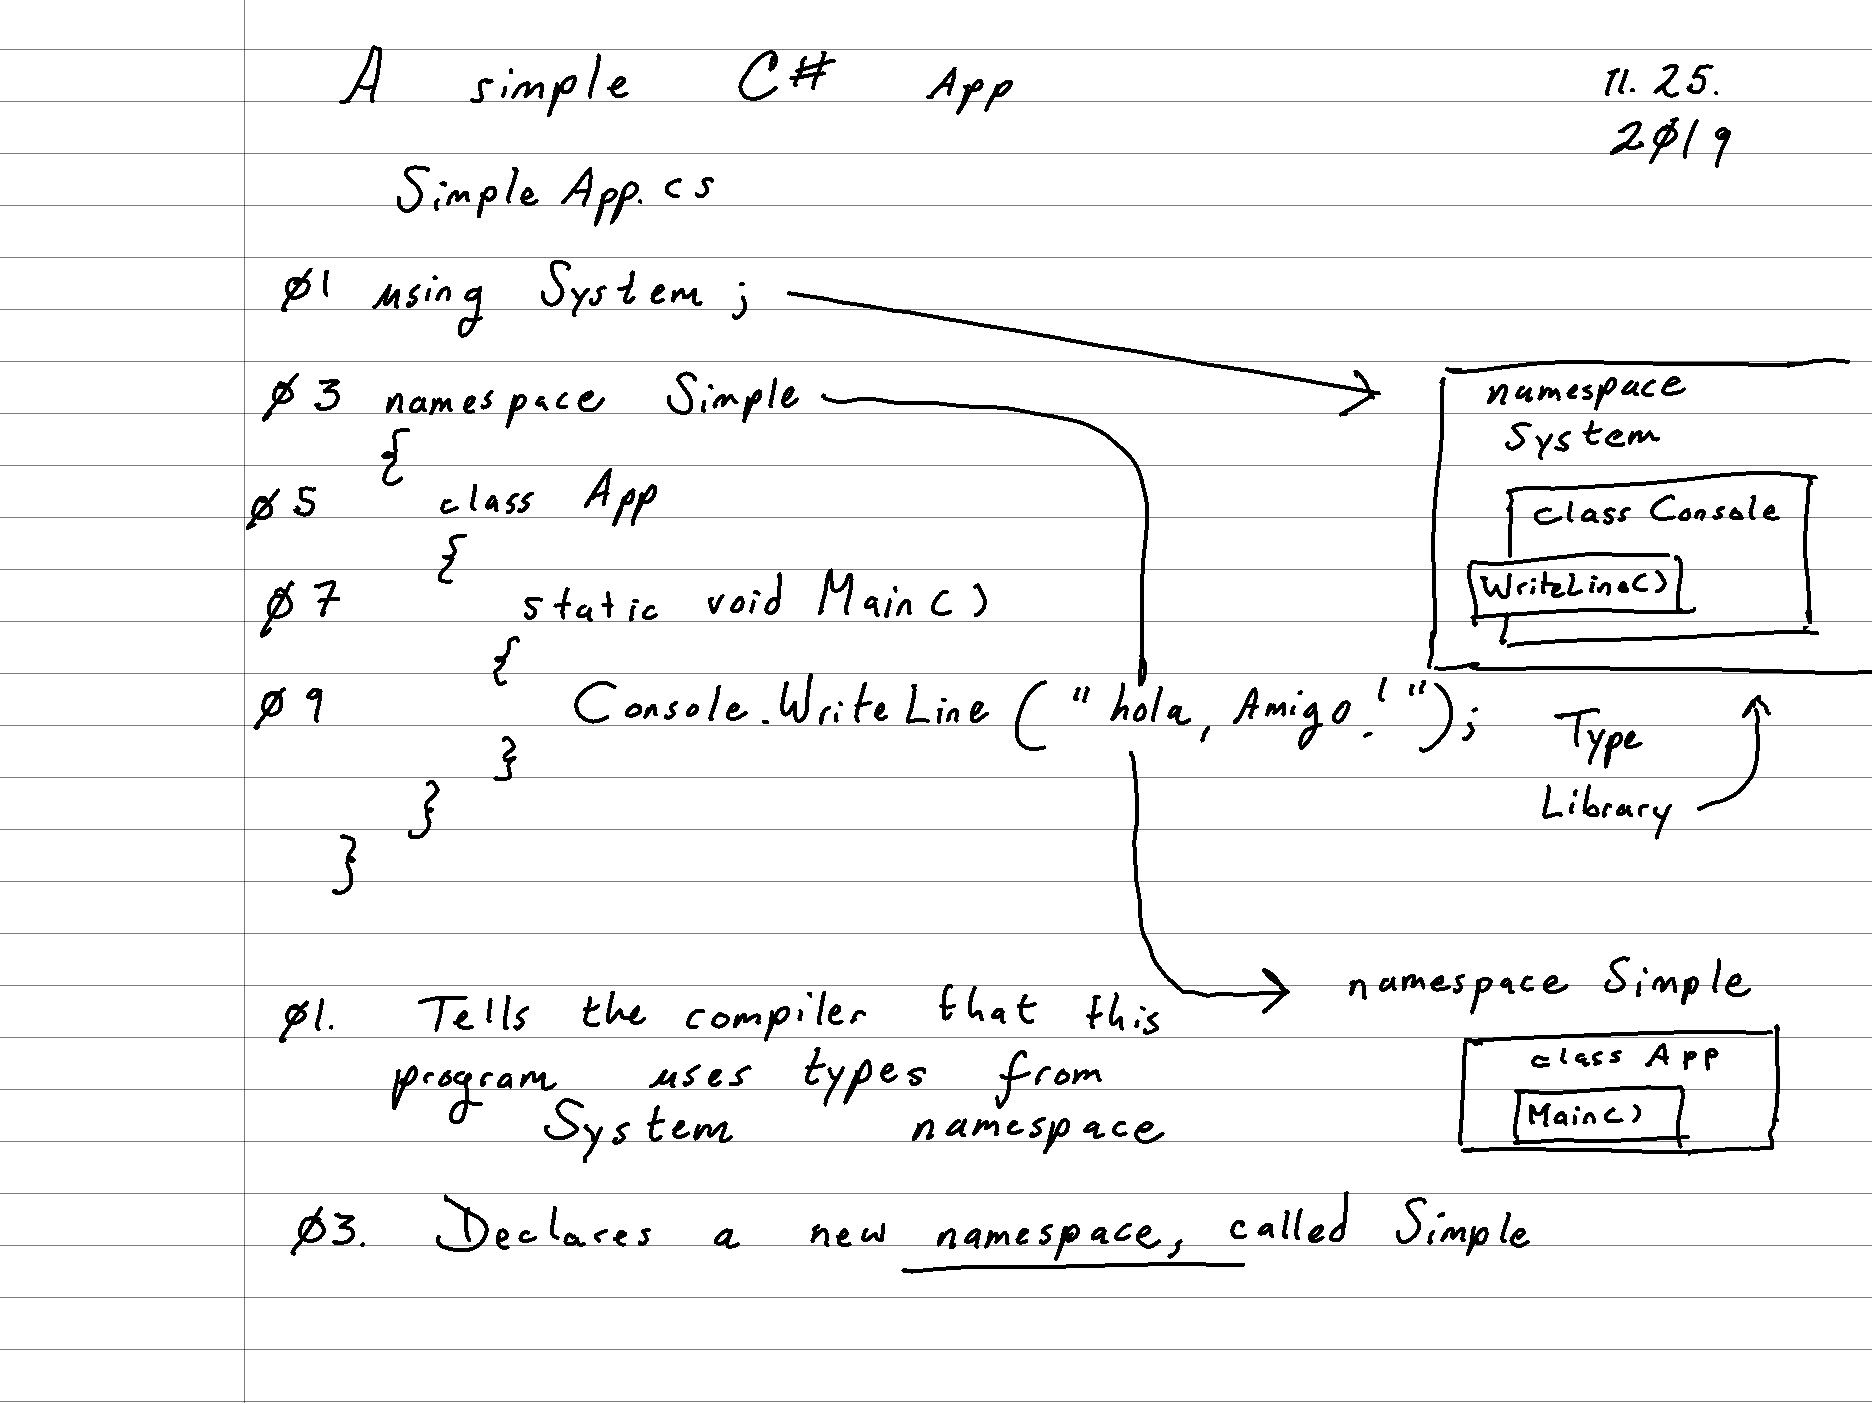 A simple C# App
11.25.
2019
SimpleApp.cs
01 using System;
03 namespace Simple
{
05 class App
{
07 static void Main()
{
09 Console.WriteLine("hola, Amigo!");
}
}
}
namespace
System
class Console
WriteLine()
Type
Library
namespace Simple
class App
Main()
01. Tells the compiler that this
program uses types from
System namespace
03. Declares a new namespace, called Simple